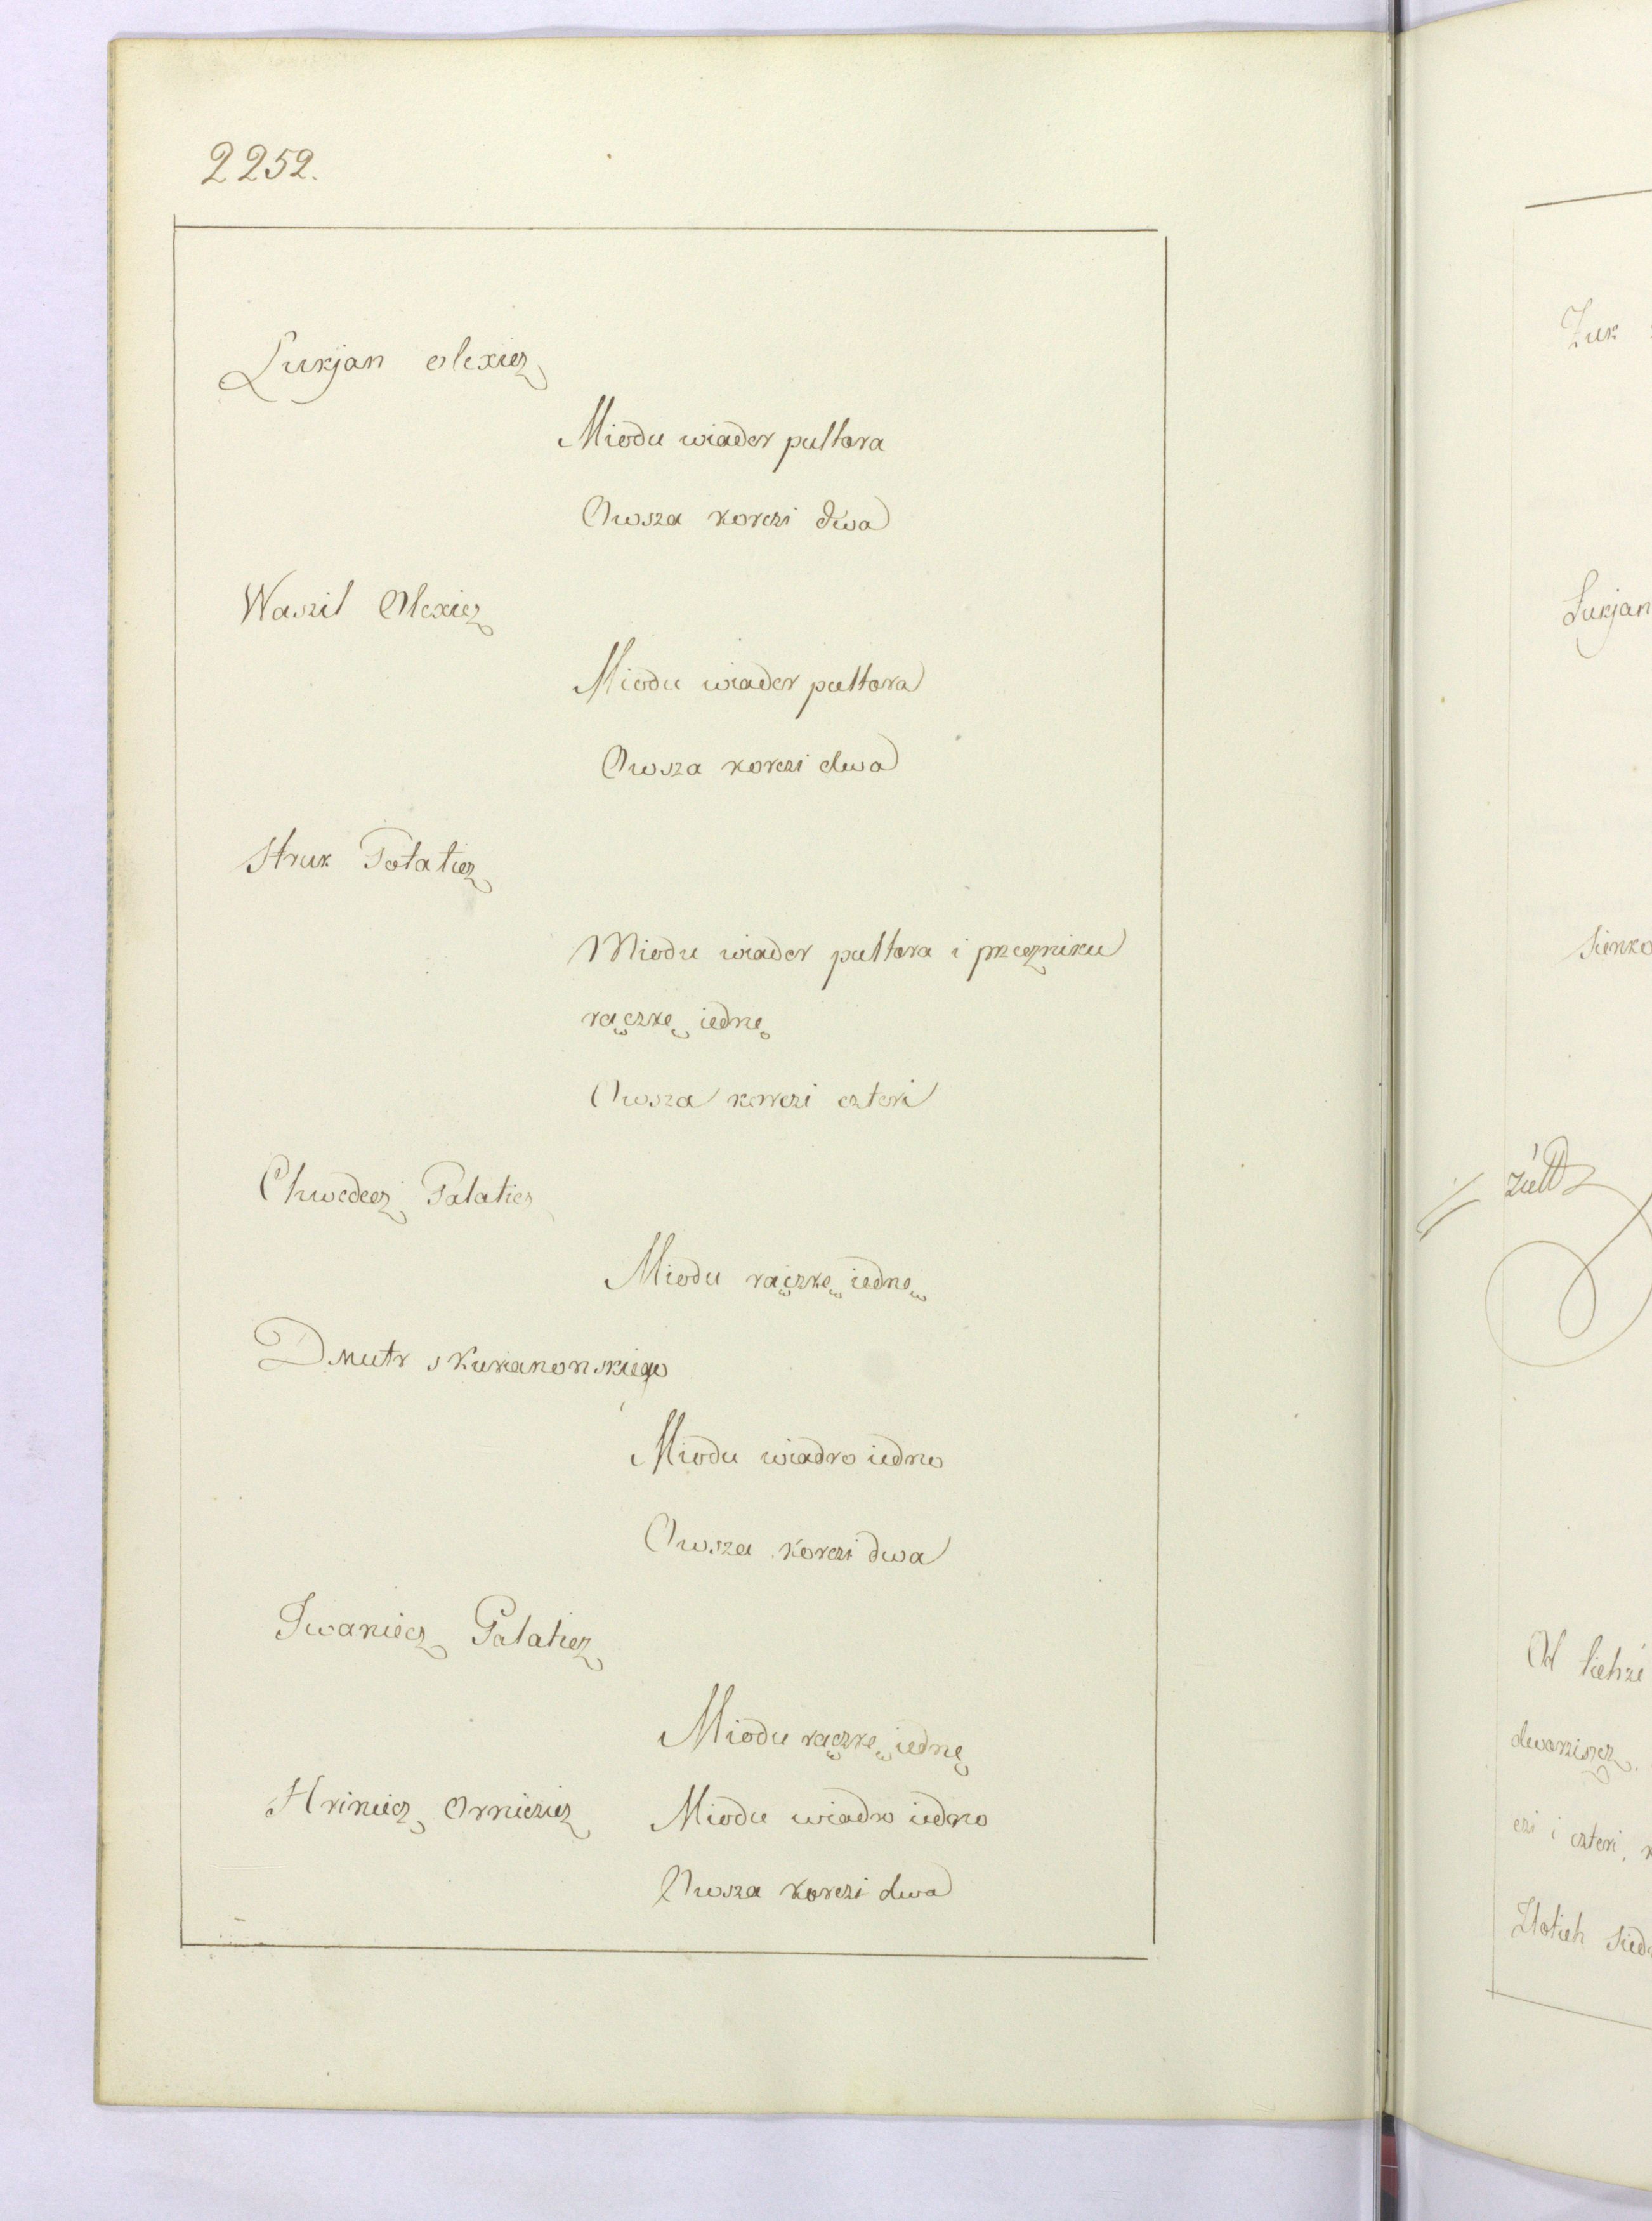 2252.
Lukjan olexicz
Miodu wiader pultora
Owsza korczi dwa
Waszil Olexicz
Miodu wiader pultora
Owsza korczi dwa
Struk Potaticz
Miodu wiader pultora i przeczniku
rączkę iednę
Owsza korczi czteri
Chwedecz Palaticz
Miodu rączkę iednę
Dmitr s Kukanonskiego
Miodu wiadro iedno
Owsza korczi dwa
Iwaniecz Palaticz
Miodu rączkę iednę
Hriniecz Orniczicz Miodu wiadro iedno
Owsza korczi dwa
Żuk
Lukjan
Sienko
Od tichzé
dworziszcz
czi i czteri,
Zlotich